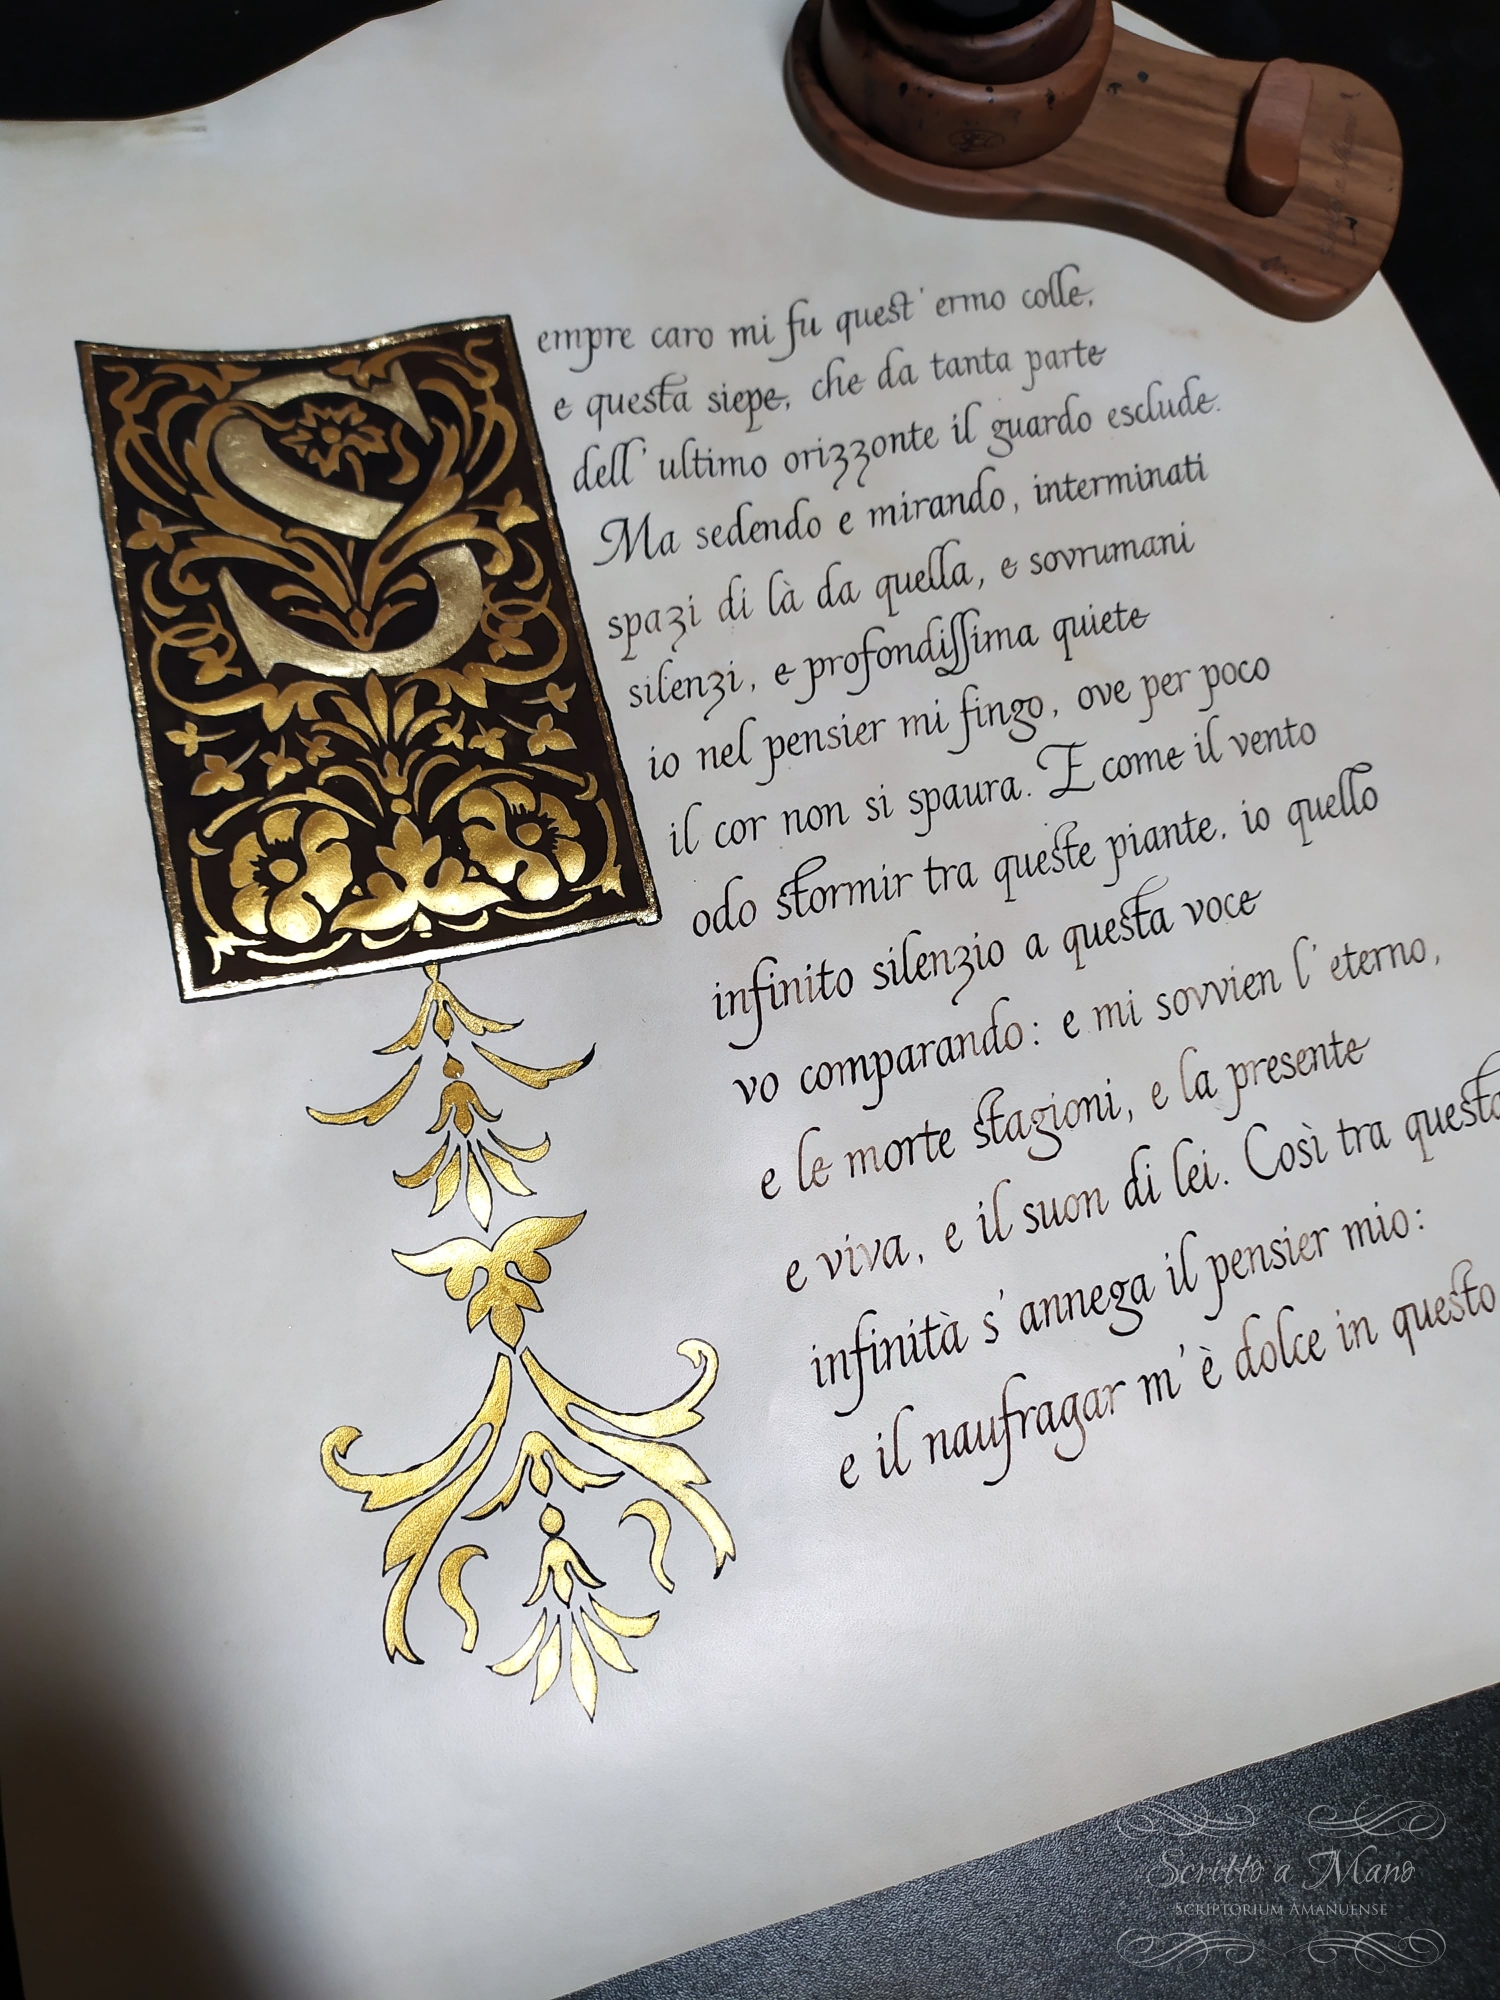 Sempre caro mi fu quest' ermo colle,
e questa siepe, che da tanta parte
dell' ultimo orizzonte il guardo esclude.
Ma sedendo e mirando, interminati
spazi di là da quella, e sovrumani
silenzi, e profondissima quiete
io nel pensier mi fingo, ove per poco
il cor non si spaura. E come il vento
odo stormir tra queste piante, io quello
infinito silenzio a questa voce
vo comparando: e mi sovvien l' eterno,
e le morte stagioni, e la presente
e viva, e il suon di lei. Così tra questa
infinità s' annega il pensier mio:
e il naufragar m' è dolce in questo
Scritto a Mano
Scriptorium Amanuense